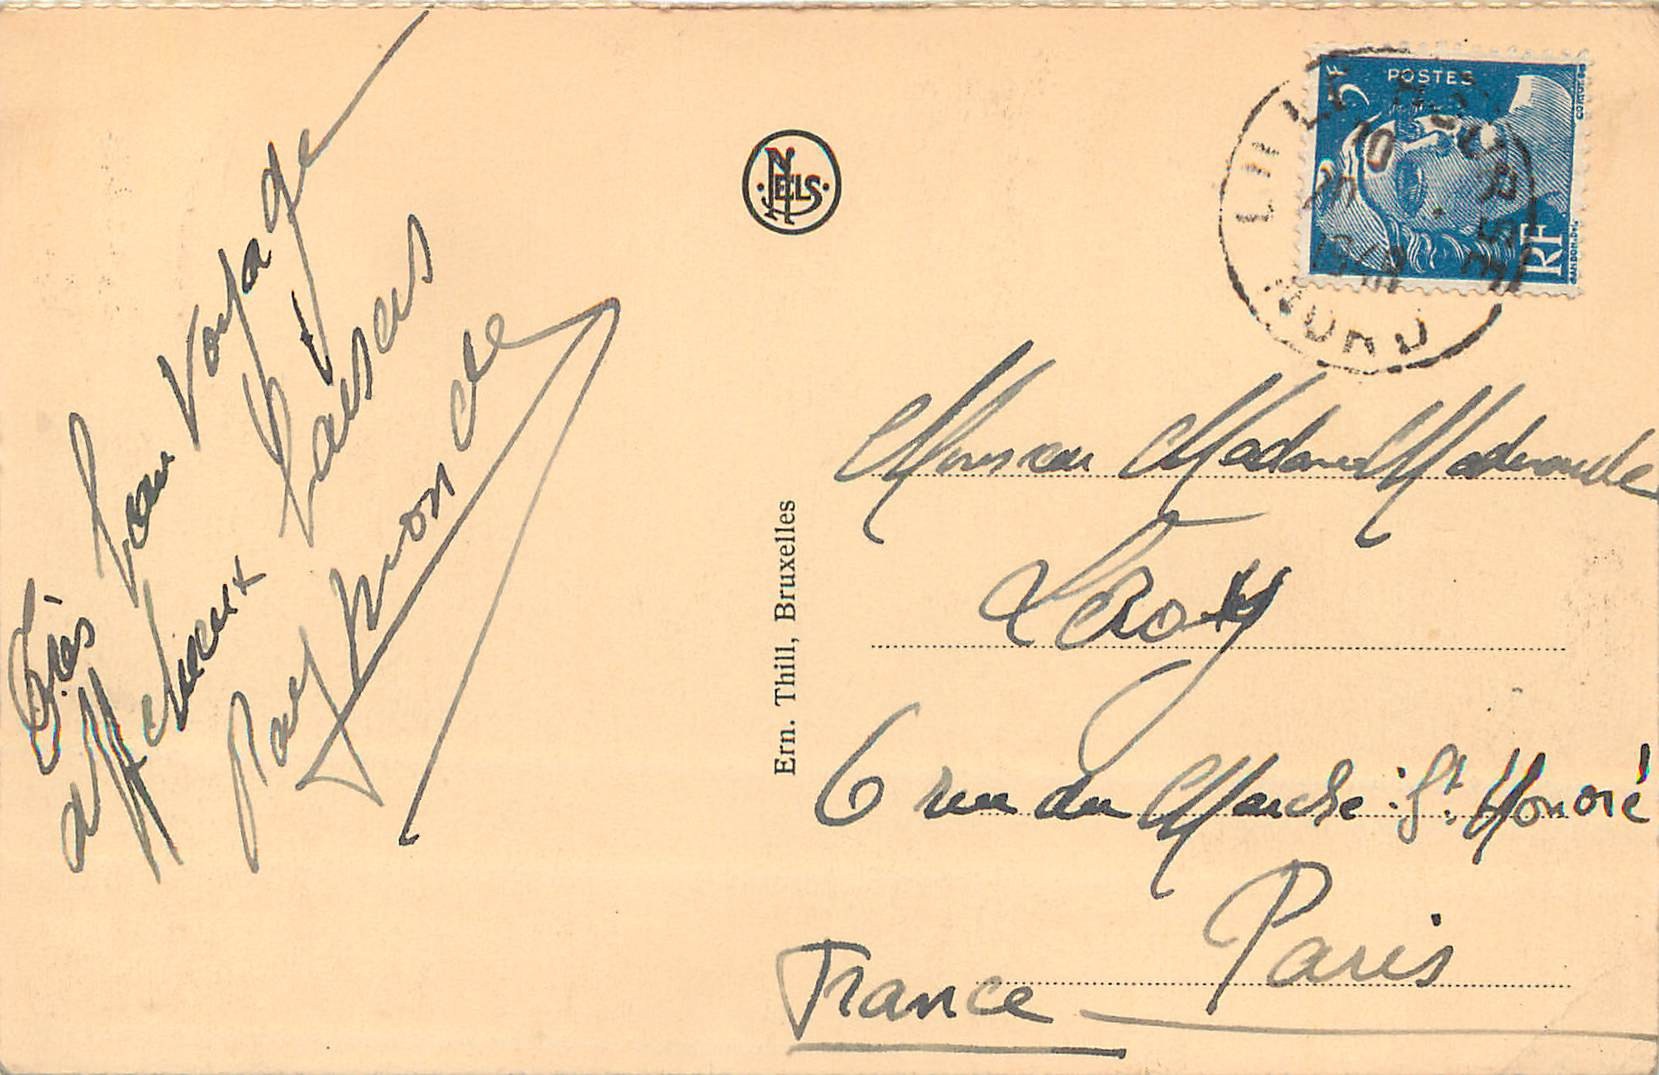 Très bon voyage
affectueux baisers
Raymonde
NELS
Ern. Thill, Bruxelles
POSTES
RF
LILLE
NORD
Monsieur Madame Mademoiselle
Leroy
6 rue du Marche St. Honoré
Paris
France